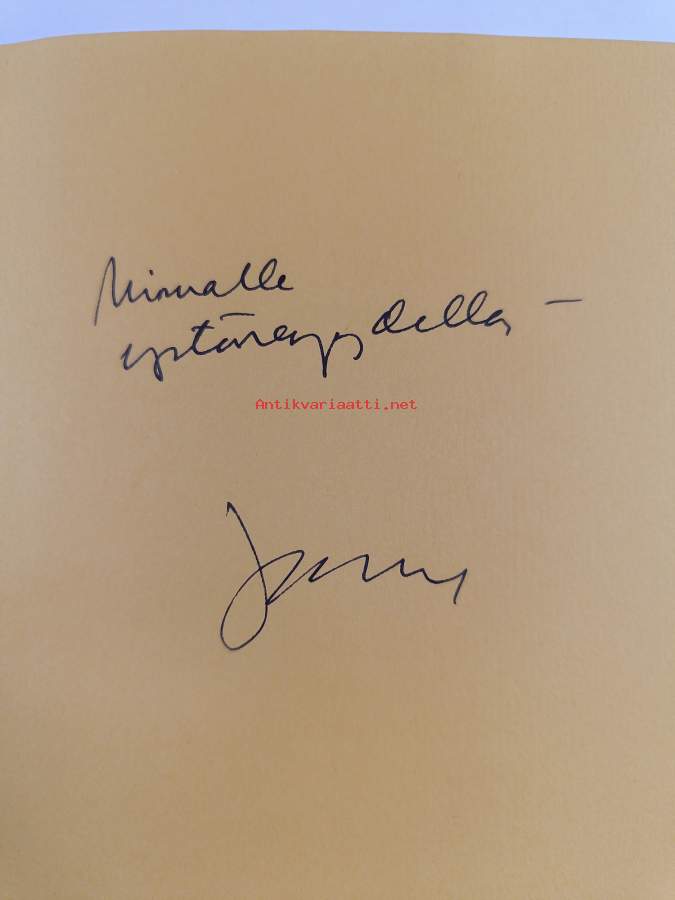 Minnalle
ystävyydellä –
Antikvariaatti.net